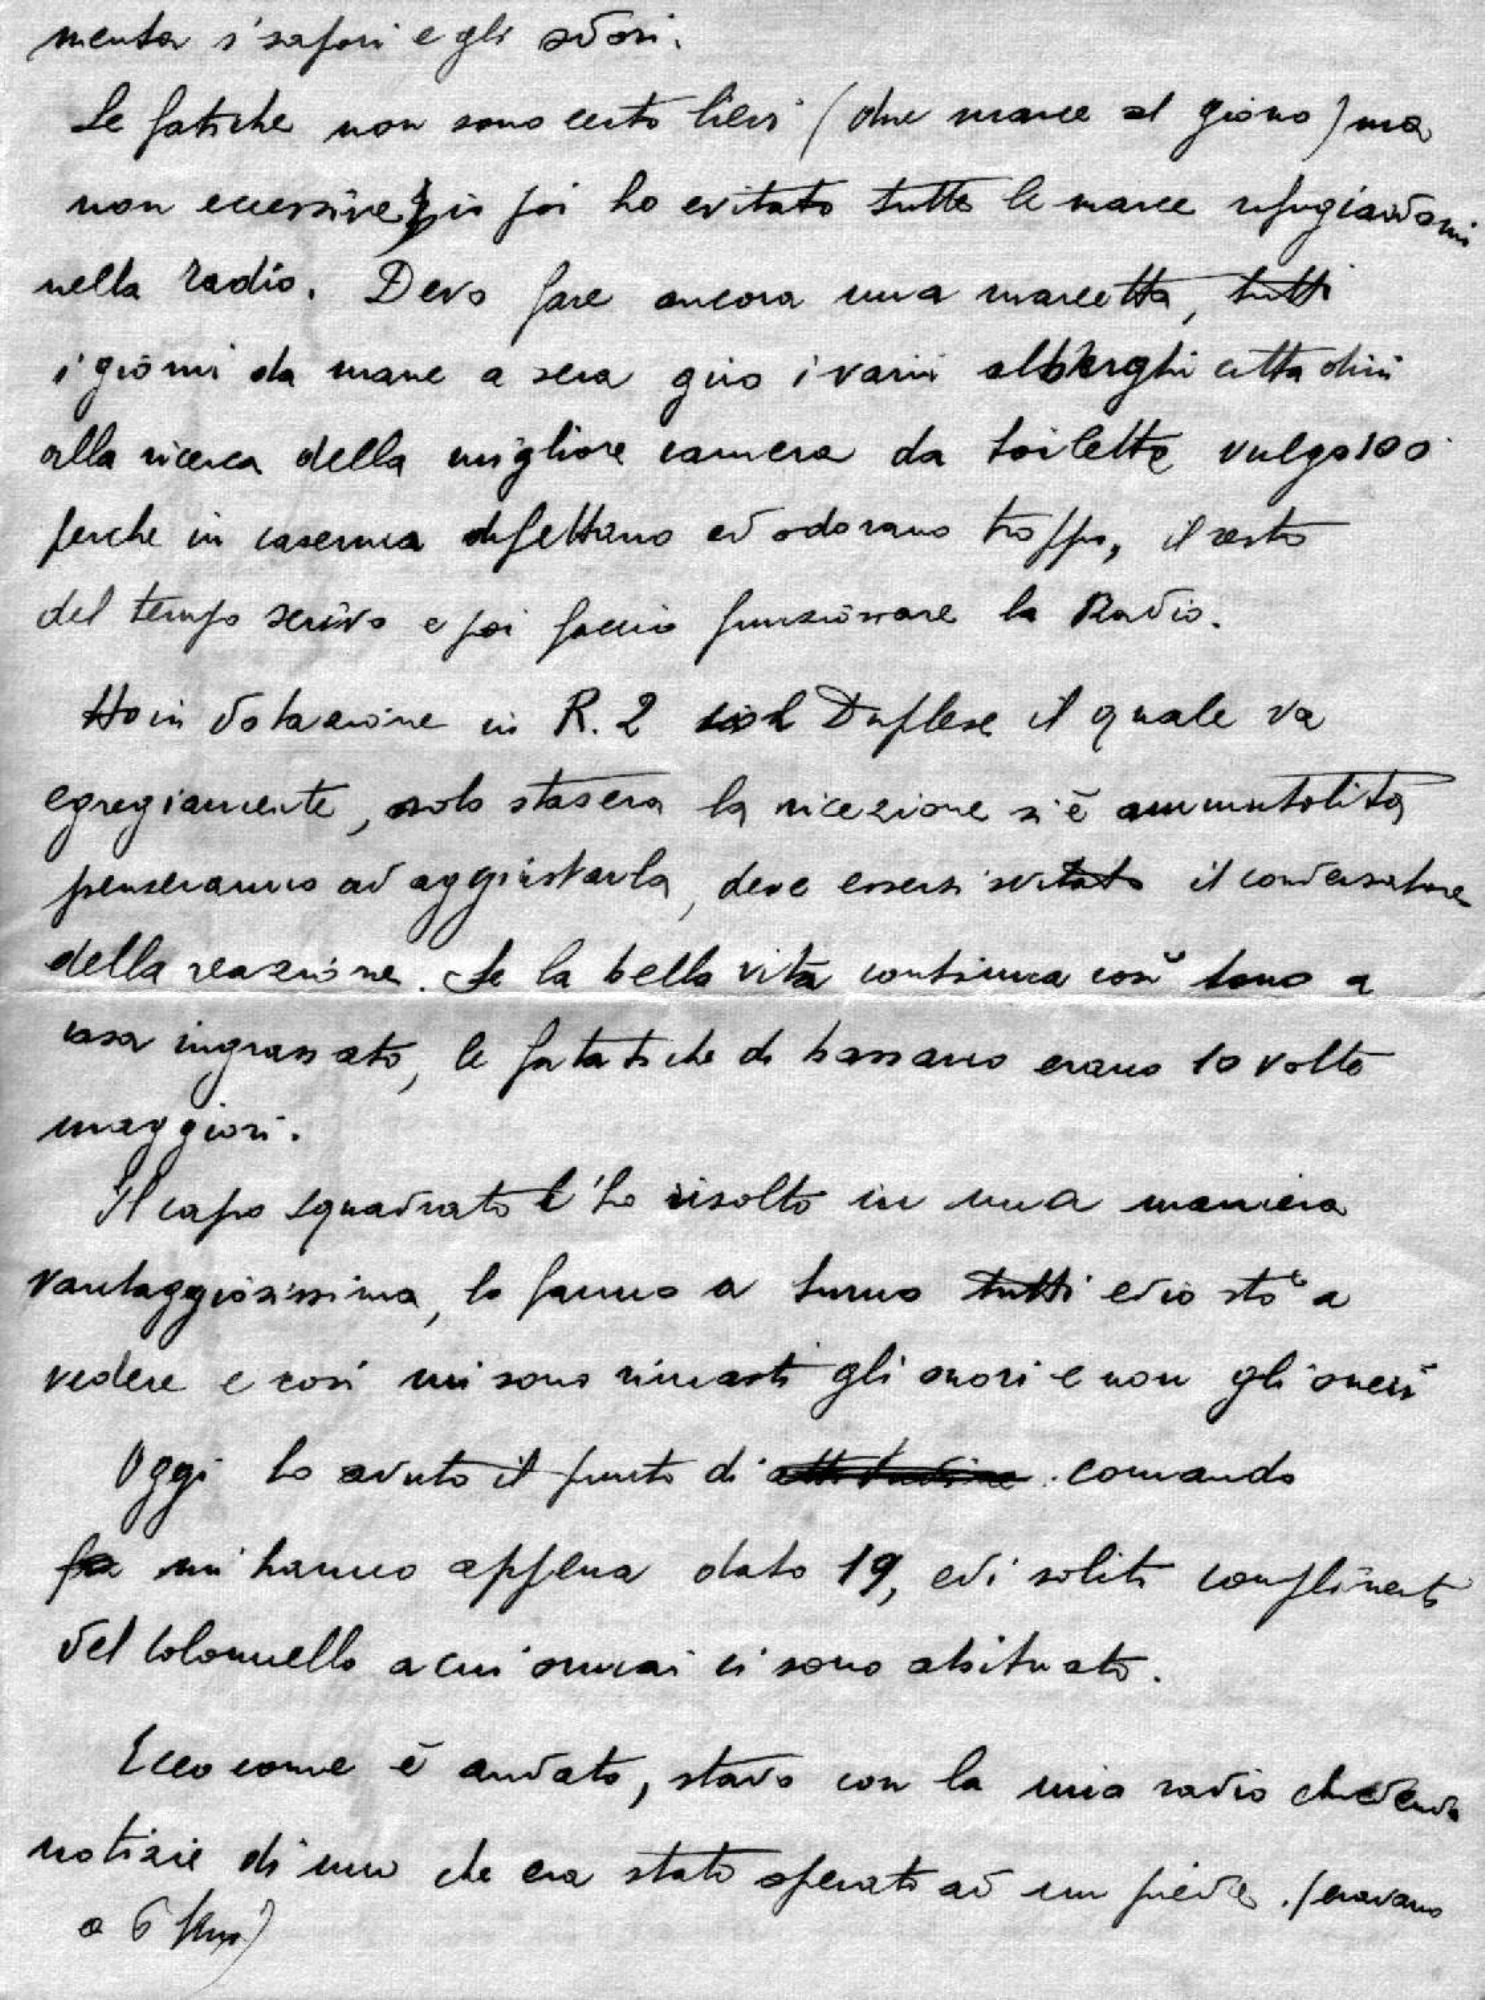 menta i sapori e gli odori.
Le fatiche non sono certo lievi (due marce al giorno) ma
non eccessive, io poi ho evitato tutte le marce rifugiandomi
nella radio. Devo fare ancora una marcetta, tutti
i giorni da mane a sera giro i varii alberghi cittadini
alla ricerca della migliore camera da toilette vulgo 100
perche in caserma difettano ed odorano troppo, il resto
del tempo scrivo e poi faccio funzionare la Radio.
Ho in dotazione in R.2 Duplese il quale va
egregiamente, solo stasera la ricezione si è ammutolita
penseranno ad aggiustarla, deve essersi il condensatore
della reazione. Se la bella vita continua così torno a
casa ingrassato, le fatatiche di bassano erano 10 volte
maggiori.
Il capo squadrato l'ho risolto in una maniera
vantaggiosissima, lo fanno a turno tutti ed io stò a
vedere e così mi sono rimasti gli onori e non gli oneri
Oggi ho avuto il punto di comando
mi hanno appena dato 19, ed i soliti complimenti
del colonnello a cui ormai ci sono abituato.
Ecco come è andato, stavo con la mia radio chiedendo
notizie di uno che era stato operato ad un piede. (eravamo
a 6 Km)